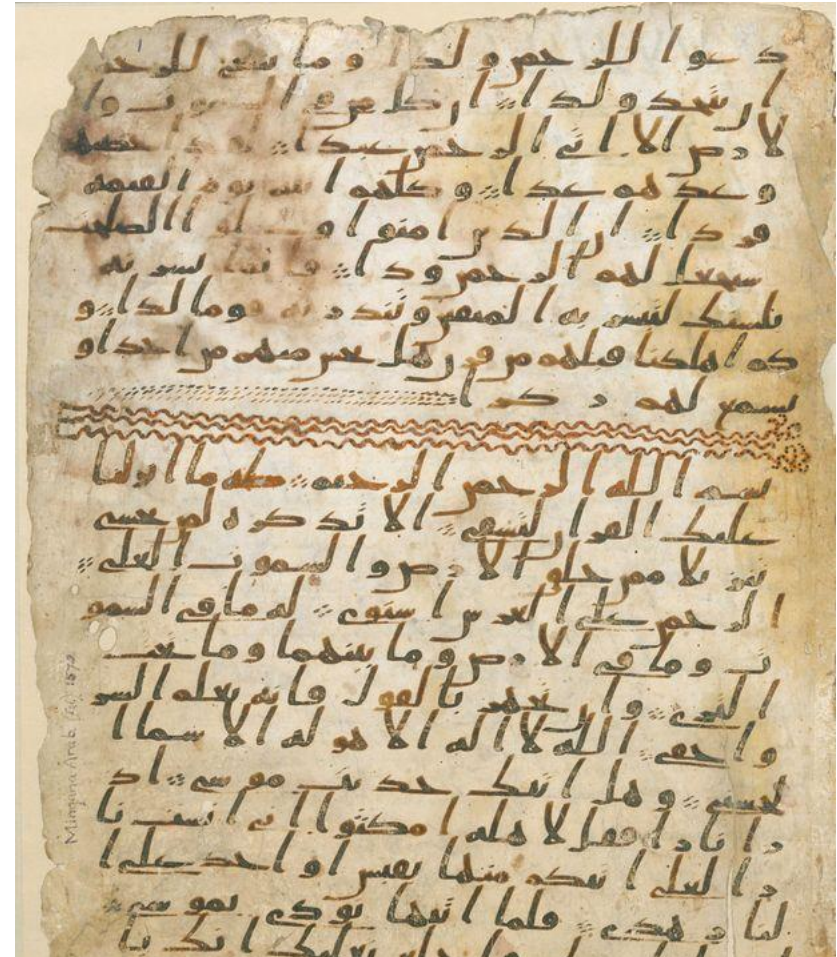 دعوا للرحمن ولدا وما ينبغي للرحمن
ان يتخذ ولدا ان كل من في السموت وا
لارض الا اتي الرحمن عبدا لقد احصيهم
وعدهم عدا وكلهم اتيه يوم القيمة
فردا ان الذين امنوا وعملوا الصلحت
سيجعل لهم الرحمن ودا فانما يسرنه
بلسنك لتبشر به المتقين وتنذر به قوما لدا و
كم اهلكنا قبلهم من قرن هل تحس منهم من احد او
تسمع لهم ركزا
بسم الله الرحمن الرحيم طه ما انزلنا
عليك القران لتشقى الا تذكرة لمن يخشى
تنزيلا ممن خلق الارض والسموت العلى
الرحمن على العرش استوى له ما في السمو
ت وما في الارض وما بينهما وما تحت
الثرى وان تجهر بالقول فانه يعلم السر
واخفى الله لا اله الا هو له الاسما ا
لحسنى وهل اتيك حديث موسى اذ
را نارا فقل لاهله امكثوا اني انست نا
را لعلي اتيكم منها بقبس او اجد على ا
لنار هدى فلما اتيها نودي يموسى
نعليك انك با
Mingana Arab. 1572